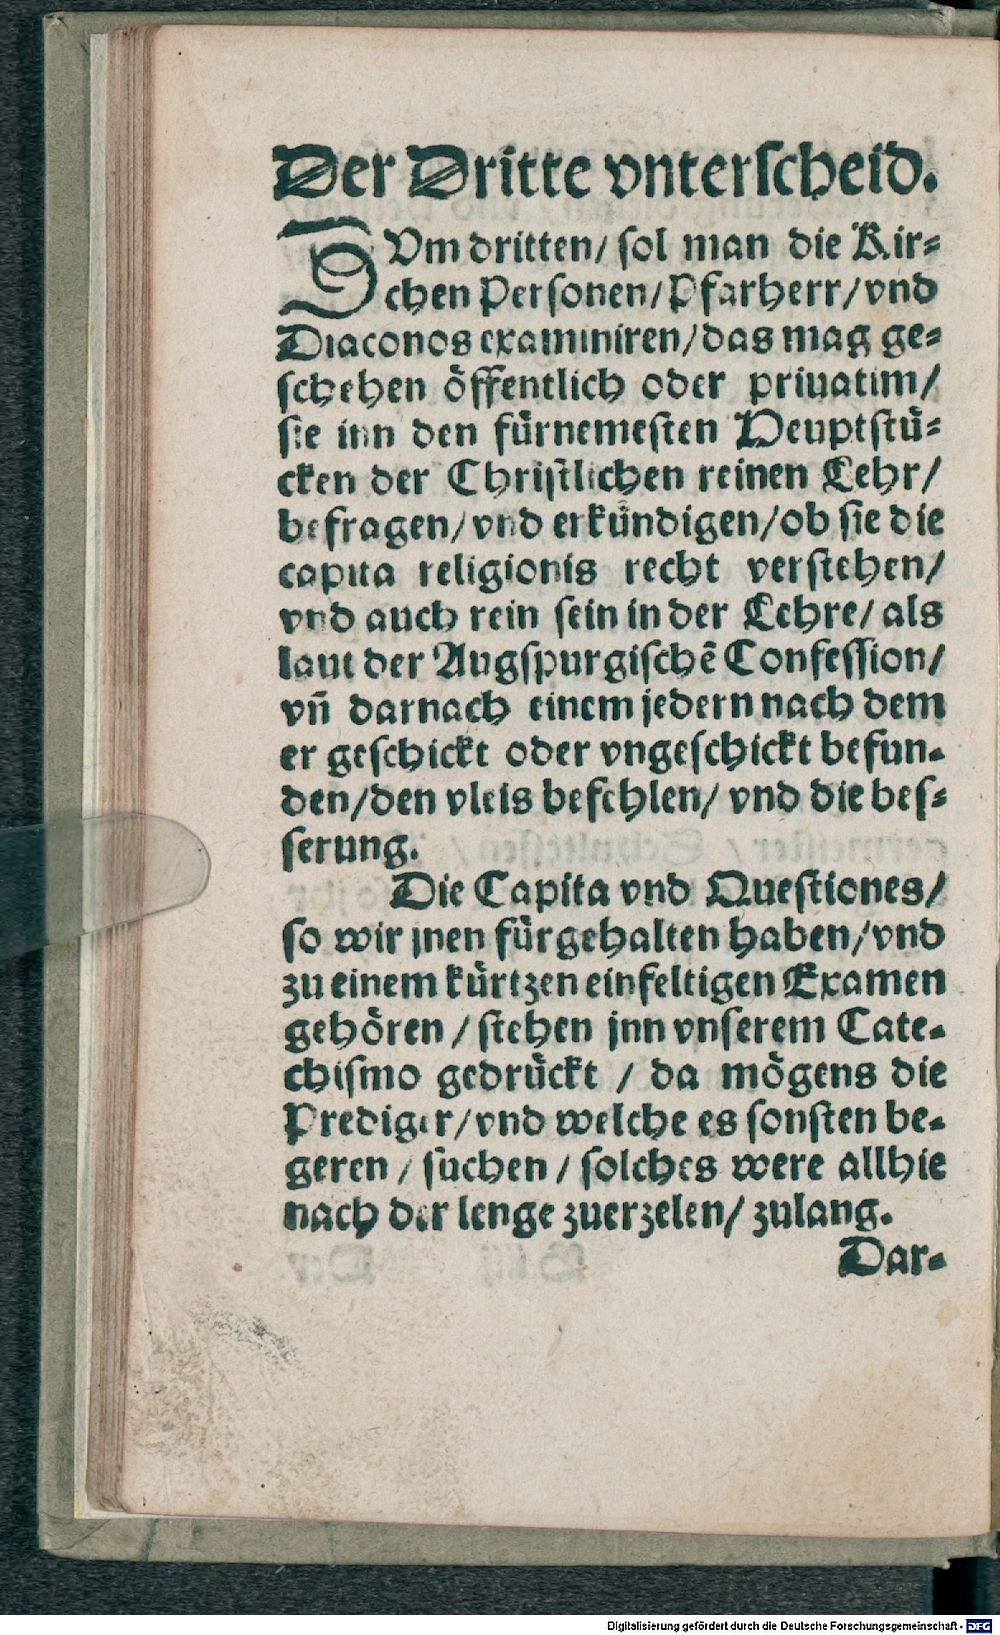 Der Dritte vnterſcheid.
ZVm dritten/ ſol man die Kir⸗
chen Perſonen/ Pfarherr/ vnd
Diaconos examiniren/ das mag ge⸗
ſchehen öffentlich oder priuatim/
ſie inn den fürnemeſten Heuptſtü⸗
cken der Chriſtlichen reinen Lehr/
befragen/ vnd erkündigen/ ob ſie die
capita religionis recht verſtehen/
vnd auch rein ſein in der Lehre/ als
laut der Augſpurgiſchē Confeſſion/
vn̄ darnach einem jedern nach dem
er geſchickt oder vngeſchickt befun⸗
den/ den vleis befehlen/ vnd die beſ⸗
ſerung.
Die Capita vnd Queſtiones/
ſo wir jnen fürgehalten haben/ vnd
zu einem kürtzen einfeltigen Examen
gehören / ſtehen jnn vnſerem Cate⸗
chiſmo gedrückt / da mögens die
Prediger/ vnd welche es ſonſten be⸗
geren / ſuchen / ſolches were allhie
nach der lenge zuerzelen/ zulang.
Dar⸗
Digitalisierung gefördert durch die Deutsche Forschungsgemeinschaft - DFG